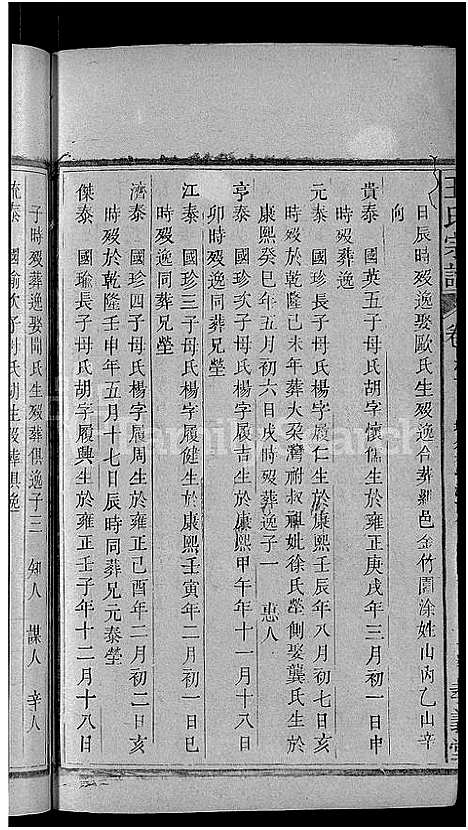 王氏宗譜
日辰時歿逸娶歐氏生歿逸合葬邑金竹園涂姓山內乙山辛
向
貴泰　國英五子母氏胡字懷儒生於雍正庚戌年三月初一日申
時歿逸
元泰　國珍長子母氏楊字履仁生於康熙壬辰年八月初七日亥
時歿於乾隆己未年葬大灣祔叔祖妣徐氏塋側娶龔氏生於
康熙癸巳年五月初六日戌時歿葬逸子一　忠人
亨泰　國珍次子母氏楊字履吉生於康熙甲午年十一月初十日
卯時歿逸同葬兄塋
江泰　國珍三子母氏楊字履健生於康熙壬寅年二月初一日巳
時歿逸同葬兄塋
濟泰　國珍四子母氏楊字履周生於雍正己酉年二月初二日亥
時歿於乾隆壬申年五月十七日辰時同葬兄元泰塋
傑泰　國瑜長子母氏胡字履興生於雍正壬子年十二月十八日
子時歿葬逸娶閔氏生歿葬俱逸子三　知人　謀人　辛人
流泰　國瑜次子母氏胡生歿葬俱逸
孝義堂